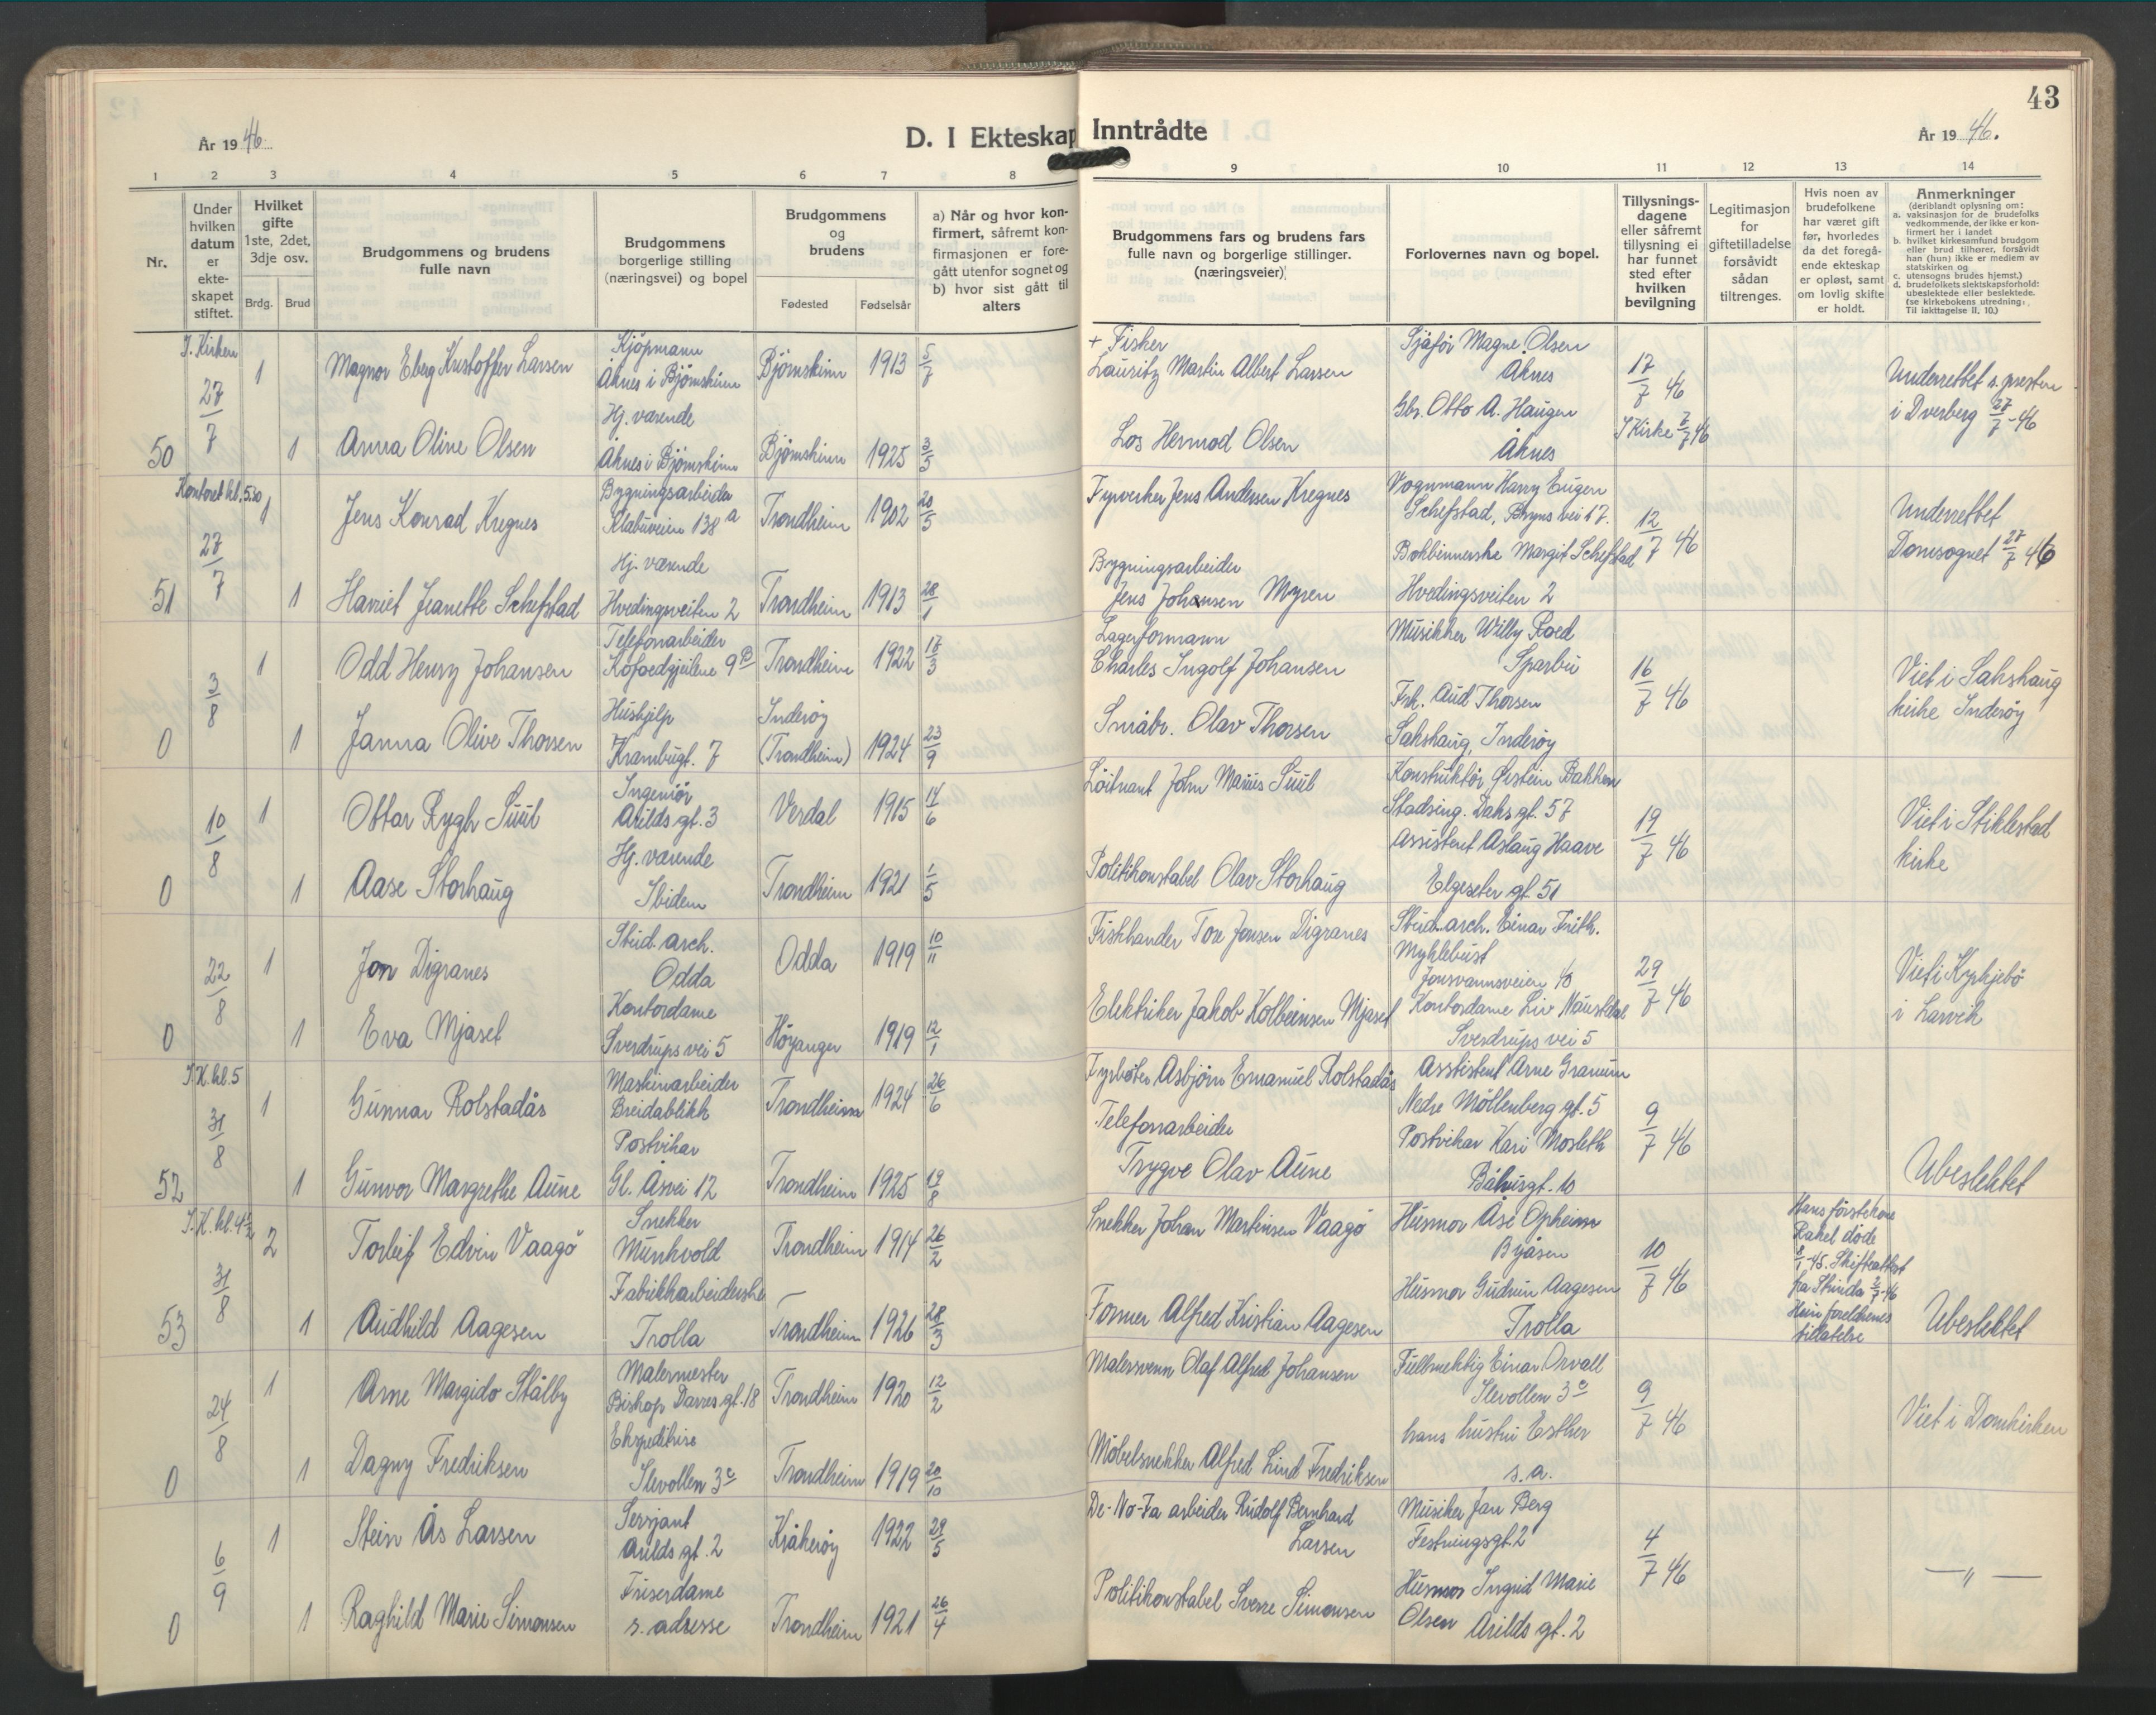 43
År 19 46.
D. I Ekteskap
Inntrådte
År 19 46.
1 2 3 4 5 6 7 8
9 10 11 12 13 14
Nr.
Under hvilken datum er ekte-skapet stiftet.
Hvilket gifte 1ste, 2det, 3dje osv.
Brdg. Brud
Brudgommens og brudens fulle navn
Brudgommens borgerlige stilling (næringsvei) og bopel
Brudgommens og brudens
Fødested Fødselsår
a) Når og hvor kon-firmert, såfremt kon-firmasjonen er fore-gått utenfor sognet og
b) hvor sist gått til alters
Brudgommens fars og brudens fars fulle navn og borgerlige stillinger. (næringsveier)
Forlovernes navn og bopel.
Tillysnings-dagene eller såfremt tillysning ei har funnet sted efter hvilken bevilgning
Legitimasjon for giftetilladelse forsåvidt sådan tiltrenges.
Hvis noen av brudefolkene har været gift før, hvorledes da det foregå-ende ekteskap er opløst, samt om lovlig skifte er holdt.
Anmerkninger
(deriblandt oplysning om:
a. vaksinasjon for de brudefolks vedkommende, der ikke er kon-firmert her i landet
b. hvilket kirkesamfund brudgom eller brud tilhører, forsåvidt han (hun) ikke er medlem av statskirken og
c. utensogns brudes hjemst.)
d. brudefolkets slektskapsforhold: ubeslektede eller beslektede.
(se kirkebokens utredning: Til iakttagelse II. 10.)
I. Kirken
27/7
1
Magnor Eberg Kristoffer Larsen
Kjøpmann
Åknes i Bjørnskinn
Bjørnskinn 1913 5/7
+ Fisker
Lauritz Martin Albert Larsen
Sjåfør Magne Olsen
Åknes
17/7 46
Underrettet s. presten
i Dverberg 27/7-46
50
1
Anna Oline Olsen
Hj. værende
Åknes i Bjørnskinn
Bjørnskinn 1925 3/5
Los Hermod Olsen
Gbr. Otto A. Haugen
Åknes
Kontoret kl. 5.30
27/7
1
Jens Konrad Kregnes
Bygningsarbeider
Klæbuveien 138 a
Trondheim 1902 20/5
Fyrverker Jens Andersen Kregnes
Vognmann Harry Eugen
Schefstad, Bryns vei 17.
12/7 46
Underrettet
Domsognet 27/7 46
51
1
Harriet Jeanette Schefstad
Hj. værende
Hvedingsveiten 2
Trondheim 1913 28/1
Bygningsarbeider
Jens Johansen Myren
Bokbinnerske Margit Schefstad
Hvedingsveiten 2
3/8
1
Odd Henry Johansen
Telefonarbeider
Kofoedgjeilene 9 B
Trondheim 1922 17/3
Lagerformann
Charles Ingolf Johansen
Musikker Willy Roed
Sparbu
16/7 46
Viet i Sakshaug
kirke Inderøy
0
1
Janna Olive Thorsen
Hushjelp
Krambugt. 7
Inderøy
(Trondheim) 1924 23/9
Småbr. Olav Thorsen
Frk. Aud Thorsen
Sakshaug, Inderøy
10/8
1
Ottar Rygh Suul
Ingeniør
Arilds gt. 3
Verdal 1915 14/6
Løitnant John Marius Suul
Konstruktør Øistein Bakken
Stadsing. Dahs gt. 57
19/7 46
Viet i Stiklestad
kirke
0
1
Aase Storhaug
Hj. værende
Ibidem
Trondheim 1921 1/5
Politikonstabel Olav Storhaug
Assistent Aslaug Haave
Elgeseter gt. 51
22/8
1
Jon Digranes
Stud. arch.
Odda
Odda 1919 10/11
Fiskhandler Tore Jonsen Digranes
Stud. arch. Einar Frith.
Myklebust
Jonsvannsveien 40
29/7 46
Viet i
i Larvik
0
1
Eva Mjaset
Kontordame
Sverdrups vei 5
Høyanger 1919 12/1
Elektriker Jakob Kolbeinsen Mjaset
Kontordame Liv Naustdal
Sverdrups vei 5
I.K. kl. 5
31/8
1
Gunnar Rolstadås
Maskinarbeider
Breidablikk
Trondheim 1924 26/6
Fyrbøter Asbjørn Emanuel Rolstadås
Assistent Arne Granum
Nedre Møllenberg gt. 5
9/7 46
Ubeslektet
52
1
Gunvor Margrethe Aune
Postvikar
Gl. Åsvei 12
Trondheim 1925 17/8
Telefonarbeider
Trygve Olav Aune
Postvikar Kari Mosleth
Båhusgt. 10
I.K. kl. 4 1/2
31/8
2
Torleif Edvin Vaagø
Snekker
Munkvold
Trondheim 1914 26/2
Snekker Johan Martinsen Vaagø
Husmor Åse Opheim
Byåsen
10/7 46
Hans første kone
Rakel døde
8/1-45. Skifteattest
fra Strinda 2/7-46
Hun foreldrenes
tillatelse
Ubeslektet
53
1
Audhild Aagesen
Fabrikkarbeiderske
Trolla
Trondheim 1926 28/3
Former Alfred Kristian Aagesen
Husmor Gudrun Aagesen
Trolla
24/8
1
Arne Margido Stålby
Malermester
Bishop Darres gt. 18
Trondheim 1920 12/2
Malersvenn Olaf Alfred Johansen
Fullmektig Einar Orvall
Ilevollen 3 c
9/7 46
Viet i Domkirken
0
1
Dagny Fredriksen
Ekspeditrise
Ilevollen 3 c
Trondheim 1919 20/10
Møbelsnekker Alfred Lind Fredriksen
hans hustru Esther
s.a.
6/9
1
Stein Ås Larsen
Sersjant
Arilds gt. 2
Kråkerøy 1922 29/5
De-No-Fa arbeider Rudolf Bernhard
Larsen
Musiker Jan Berg
Festningsgt. 2
4/7 46
— " —
0
1
Raghild Marie Simonsen
Friserdame
s. adresse
Trondheim 1921 26/4
Politikonstabel Sverre Simonsen
Husmor Ingrid Marie
Olsen Arilds gt. 2